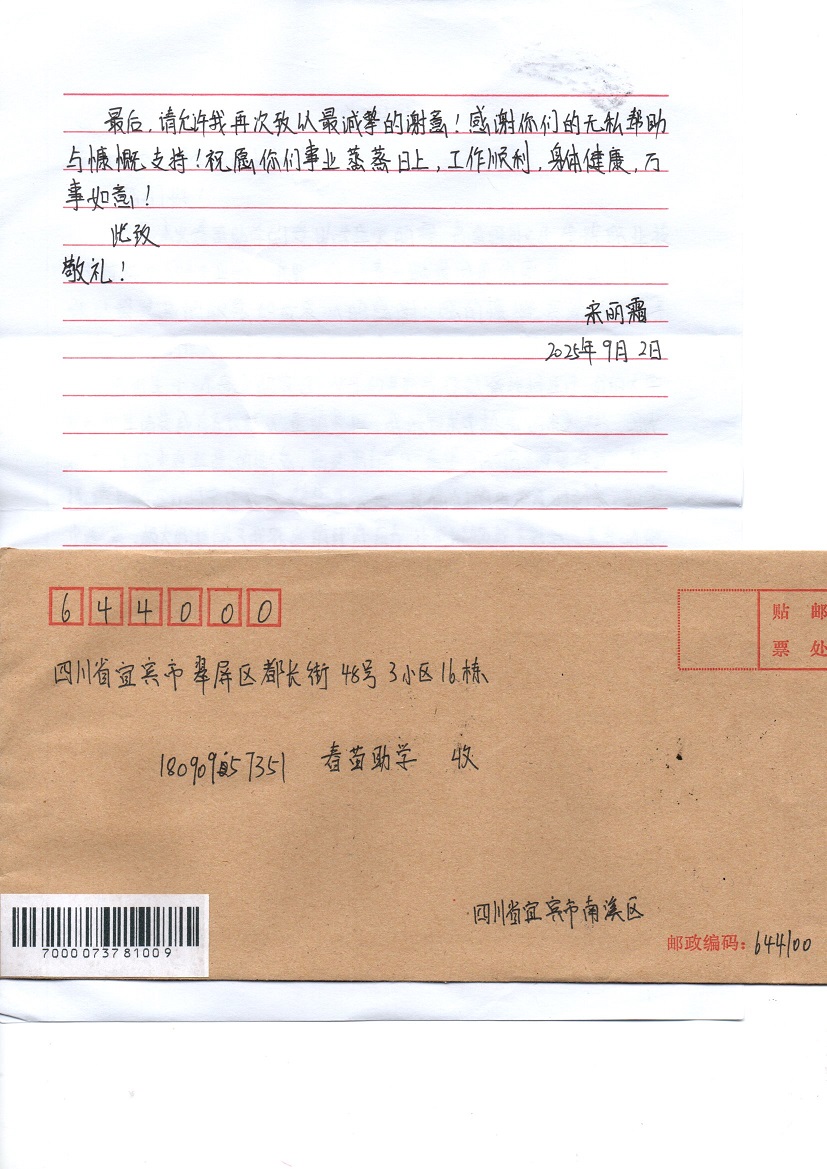 最后，请允许我再次致以最诚挚的谢意！感谢你们的无私帮助
与慷慨支持！祝愿你们事业蒸蒸日上，工作顺利，身体健康，万
事如意！
此致
敬礼！
宋丽霜
2025年9月2日
644000
贴 邮
票 处
四川省宜宾市翠屏区都长街48号3小区16栋
18090957351 春苗助学 收
四川省宜宾市南溪区
邮政编码：644100
7000073781009